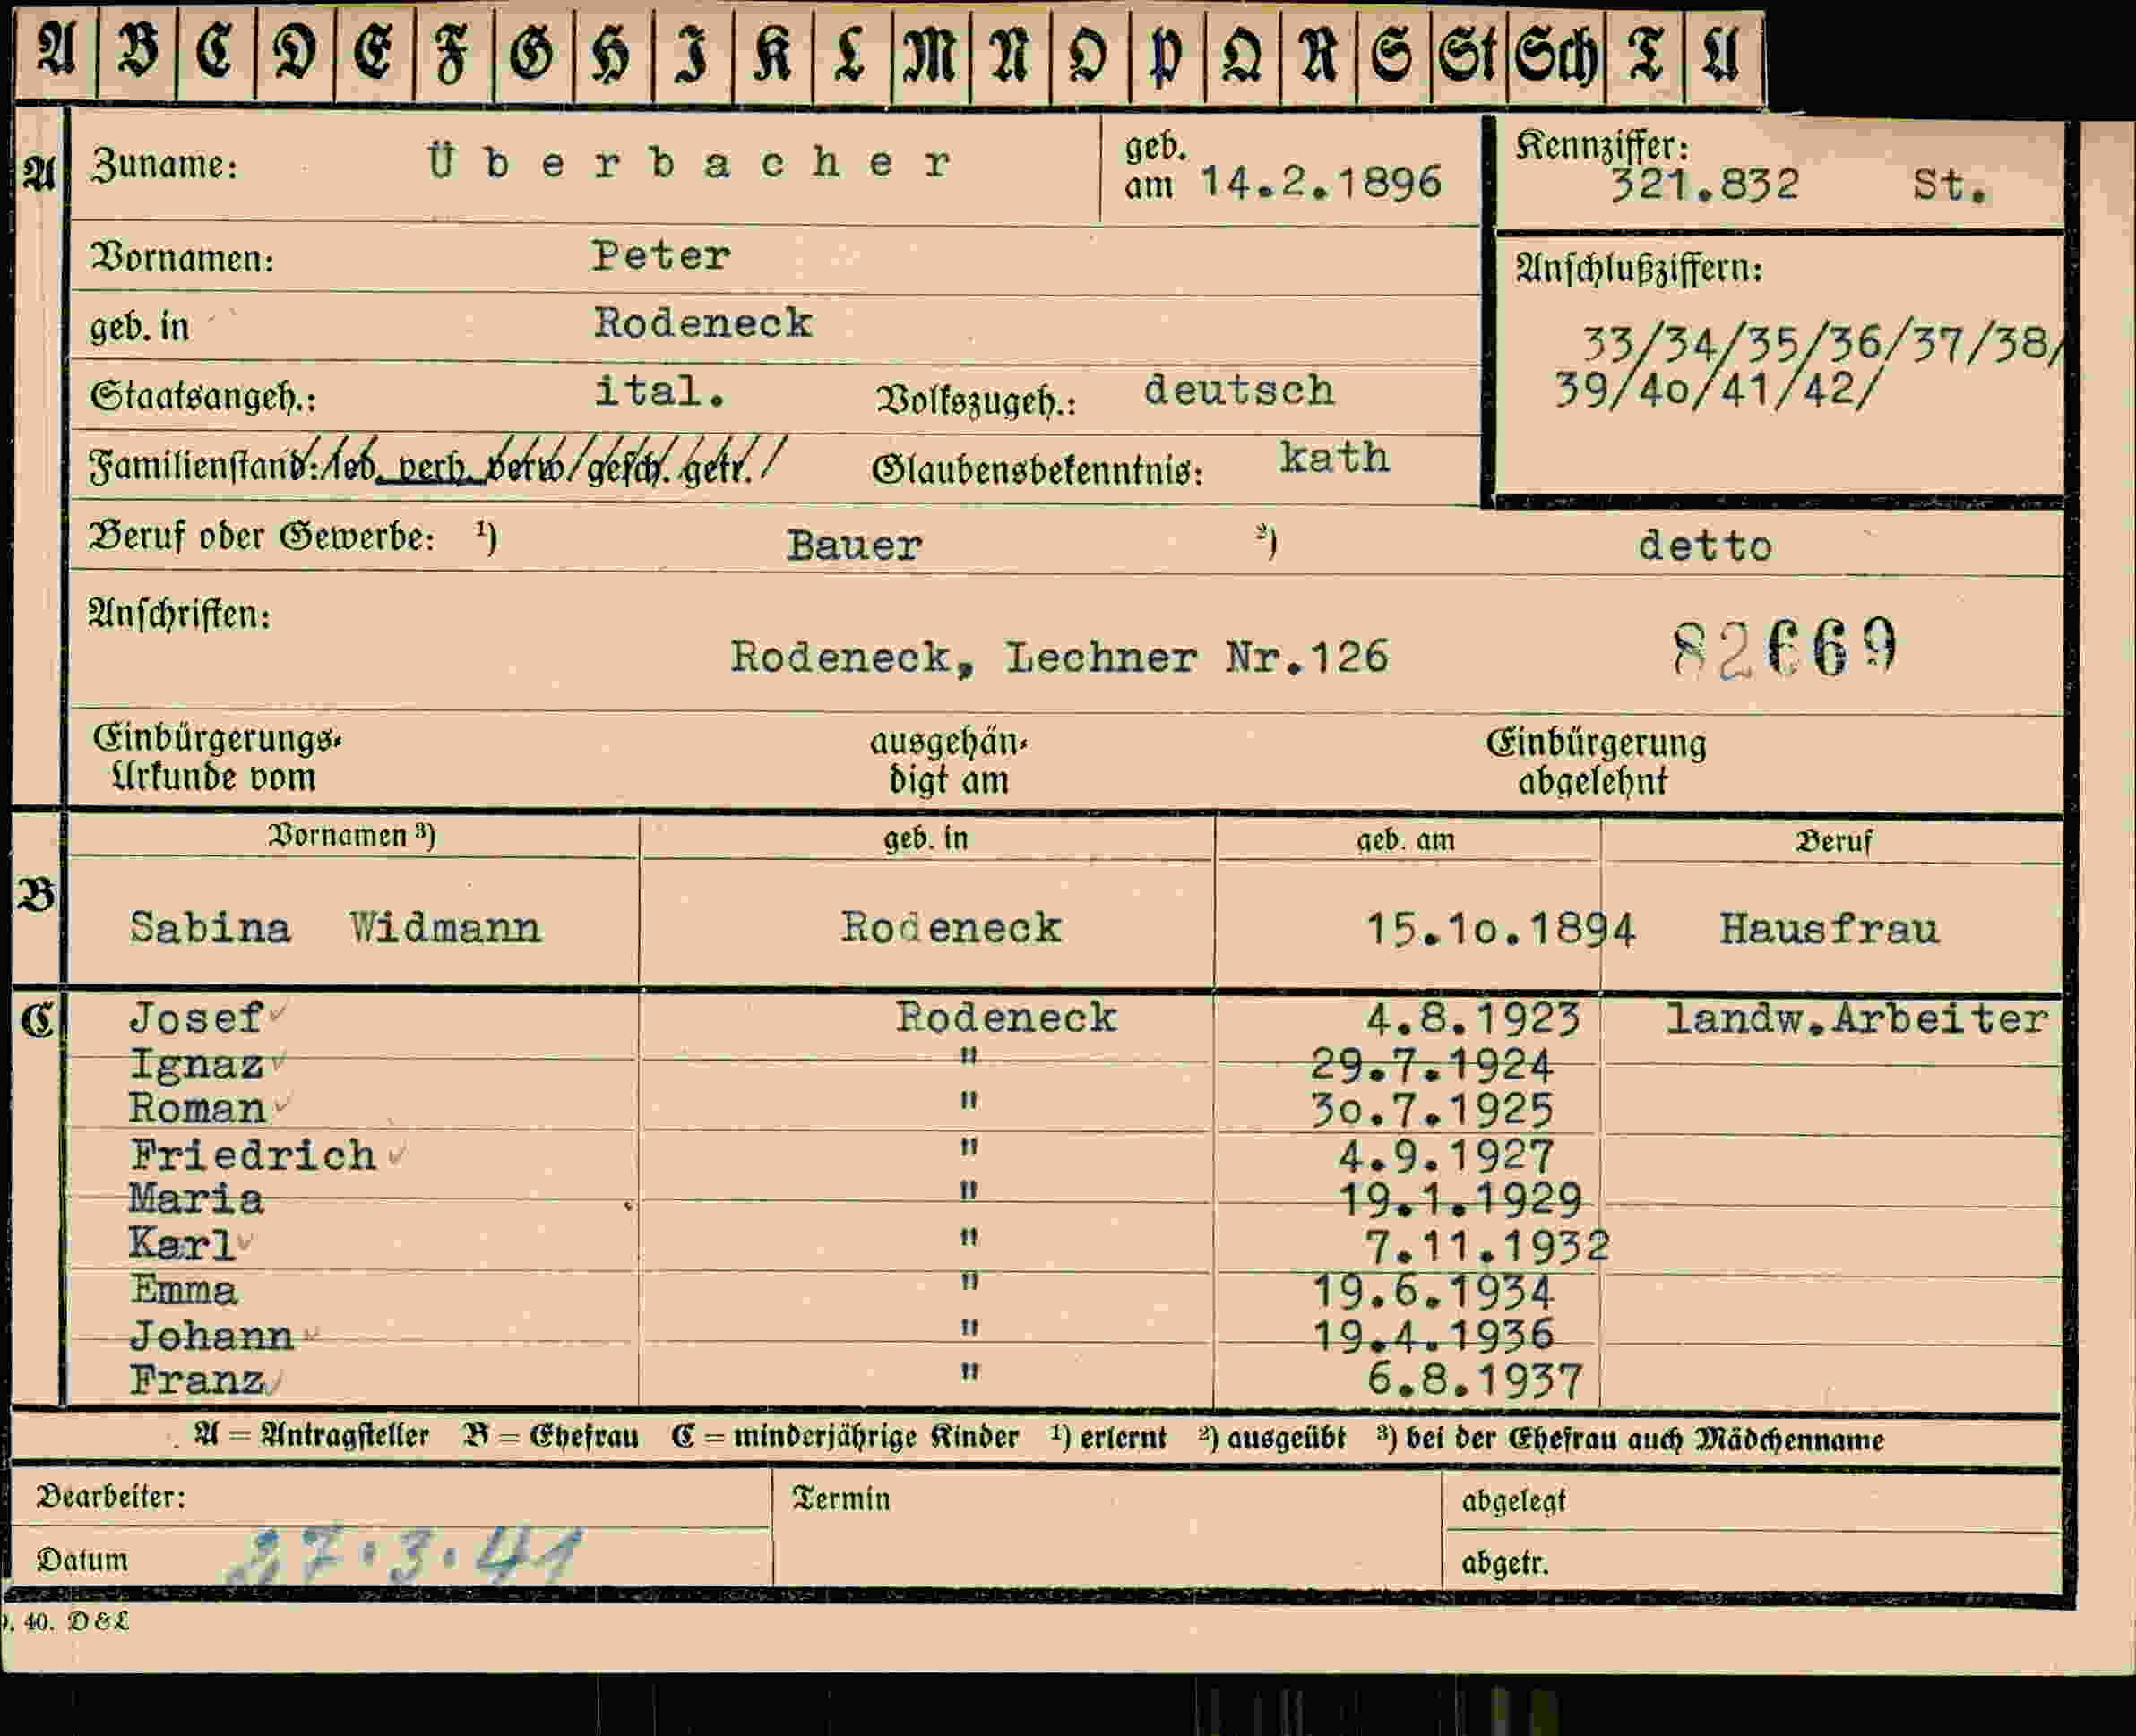 A B C D E F G H I K L M N O P Q R S St Sch T U
A Zuname: Überbacher geb. am 14.2.1896 Kennziffer: 321.832 St.
Vornamen: Peter Anschlußziffern:
geb. in Rodeneck 33/34/35/36/37/38/
Staatsangeh.: ital. Volkszugeh.: deutsch 39/4o/41/42/
Familienstand: led. verh. verw. gesch. getr. Glaubensbekenntnis: kath
Beruf oder Gewerbe: 1) Bauer 2) detto
Anschriften:
Rodeneck, Lechner Nr.126 82669
Einbürgerungs- ausgehän- Einbürgerung
Urkunde vom digt am abgelehnt
B Vornamen 3) geb. in geb. am Beruf
Sabina Widmann Rodeneck 15.1o.1894 Hausfrau
C Josef Rodeneck 4.8.1923 landw.Arbeiter
Ignaz " 29.7.1924
Roman " 3o.7.1925
Friedrich " 4.9.1927
Maria " 19.1.1929
Karl " 7.11.1932
Emma " 19.6.1934
Johann " 19.4.1936
Franz " 6.8.1937
A = Antragsteller B = Ehefrau C = minderjährige Kinder 1) erlernt 2) ausgeübt 3) bei der Ehefrau auch Mädchenname
Bearbeiter: Termin abgelegt
Datum 27.3.41 abgetr.
40. D&L